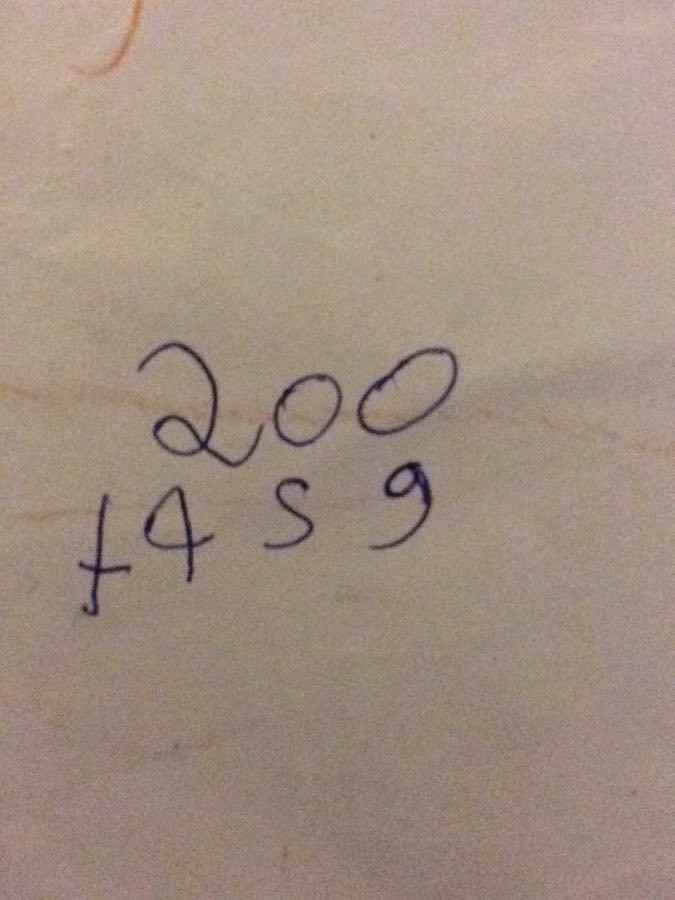 200
+459